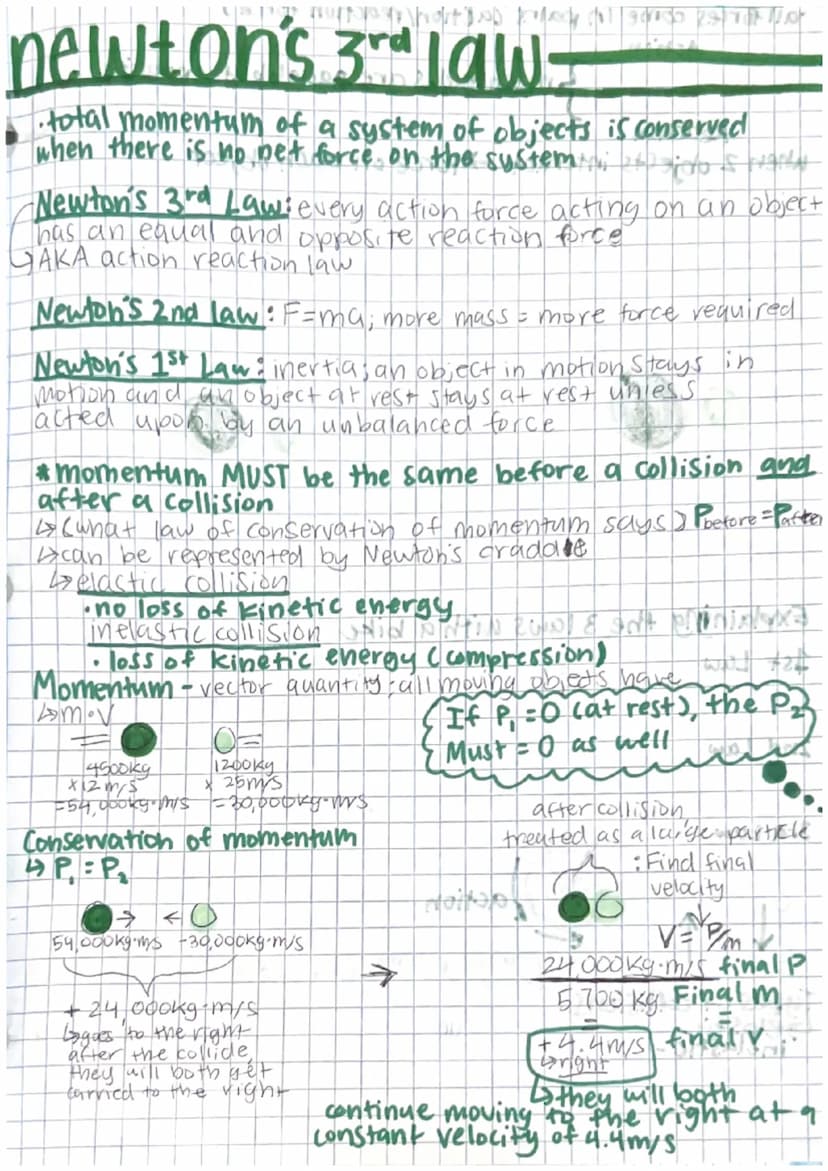 newton's 3rd law
• total momentum of a system of objects is conserved
when there is no net force on the system
Newton's 3rd Law: every action force acting on an object
has an equal and opposite reaction force
↳ AKA action reaction law
Newton's 2nd law: F=ma; more mass = more force required
Newton's 1st Law: inertia; an object in motion stays in
motion and an object at rest stays at rest unless
acted upon by an unbalanced force
* momentum MUST be the same before a collision and
after a collision
↳ (what law of conservation of momentum says) Pbefore = Pafter
↳ can be represented by Newton's cradale
↳ elastic collision
• no loss of kinetic energy
inelastic collision
• loss of kinetic energy (compression)
Momentum - vector quantity; all moving objects have
↳ m•v
4500kg
x12 m/s
=54,000kg•m/s
1200kg
x 25m/s
=30,000kg•m/s
If P1=0 (at rest), the P2
Must = 0 as well
Conservation of momentum
↳ P1 = P2
54,000kg•ms -30,000kg•m/s
+ 24,000kg•m/s
↳ goes to the right
after the collide,
they will both get
carried to the right
→
after collision,
treated as a large particle
: Find final
velocity
V = P/m
24,000kg•m/s final P
5,700 kg Final m
=
+4.4m/s final v
↳ right
↳ they will both
continue moving to the right at a
constant velocity of 4.4m/s